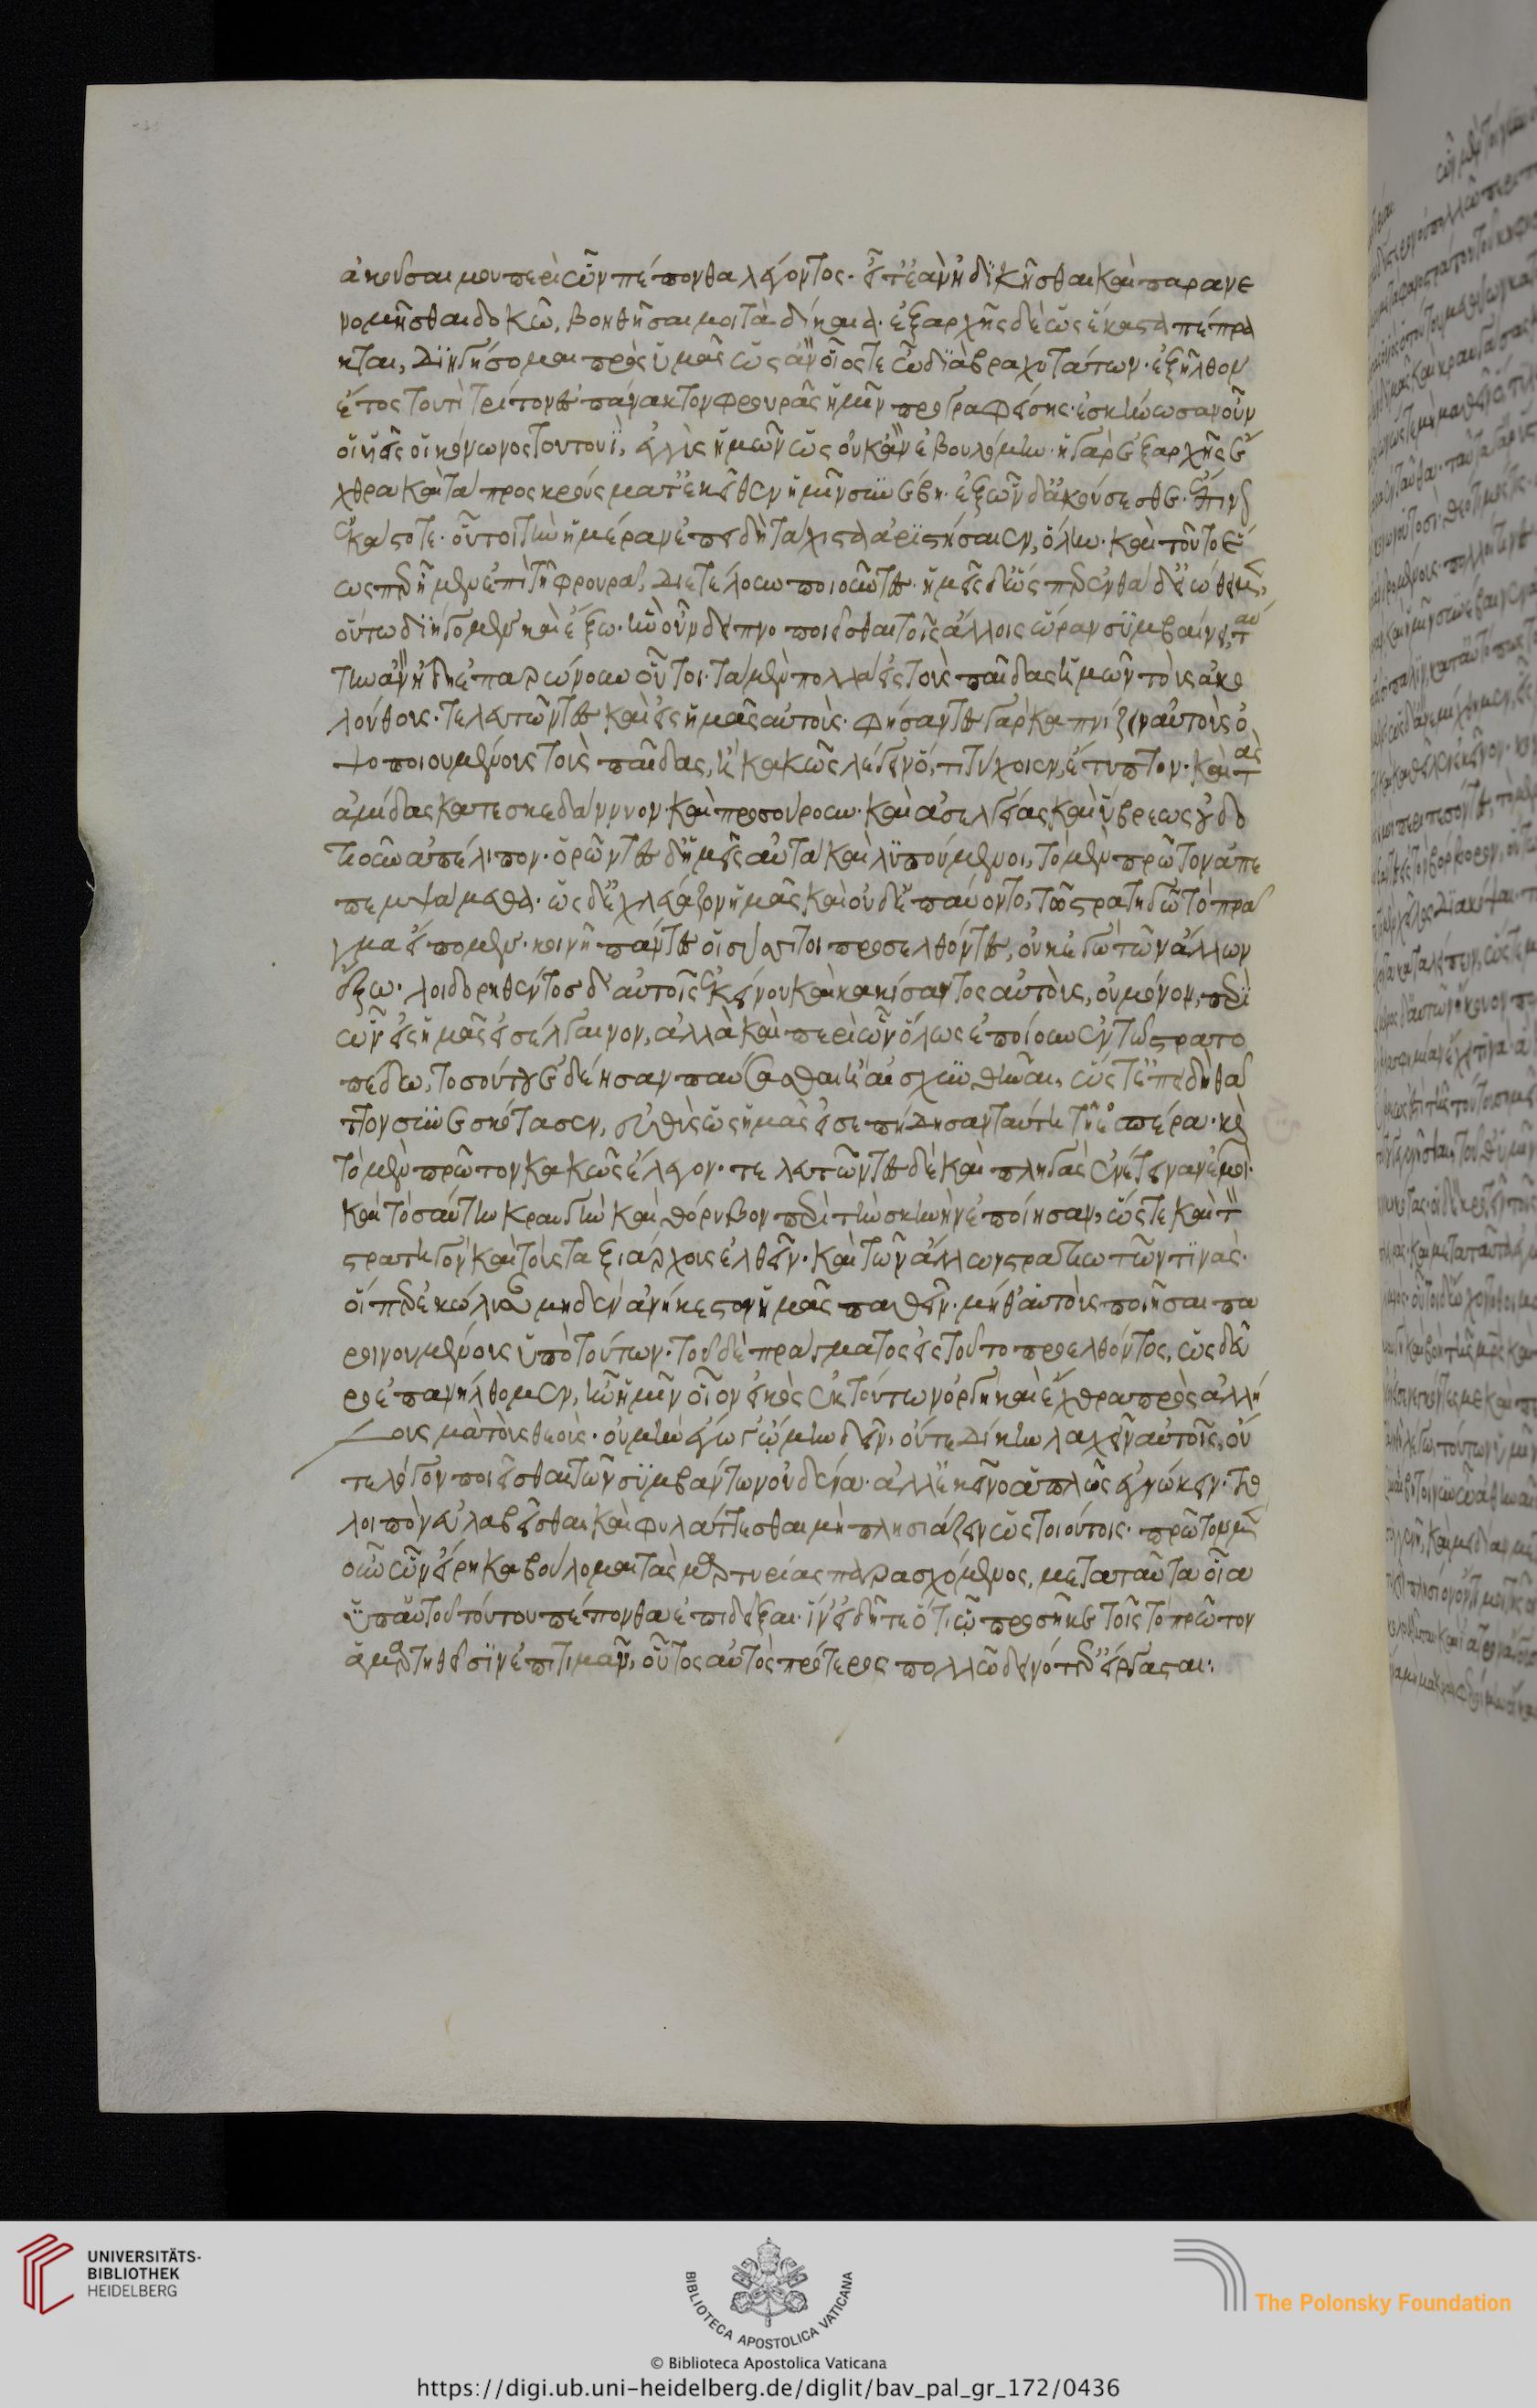 ἀκοῦσαί μου περὶ ὧν πέπονθα λέγοντος· εἶτ' ἐὰν ἠδικῆσθαι καὶ παρανε
νομῆσθαι δοκῶ, βοηθῆσαί μοι τὰ δίκαια. ἐξαρχῆς δὲ ὡς ἕκαστα πέπρα
κται, διηγήσομαι πρὸς ὑμᾶς ὡς ἂν οἷός τε ὦ διὰ βραχυτάτων· ἐξῆλθον
ἔτος τουτὶ τρίτον εἰς πάνακτον φρουρᾶς ἡμῖν προγραφείσης· ἐσκήνωσαν οὖν
οἱ υἱεῖς οἱ κόνωνος τουτουῒ, ἐγγὺς ἡμῶν ὡς οὐκ ἂν ἐβουλόμην· ἡ γὰρ ἐξαρχῆς ἔ
χθρα καὶ τὰ προσκρούσματ' ἐκεῖθεν ἡμῖν συνέβη· ἐξ ὧν δ' ἀκούσεσθε· ἔπινον
ἑκάστοτε οὗτοι τὴν ἡμέραν ἐπειδὴ τάχιστα ἀριστήσαιεν, ὅλην· καὶ τοῦτο ἕ
ως περ ἦμεν ἐπὶ τῇ φρουρᾷ, διετέλουν ποιοῦντες· ἡμεῖς δ' ὥσπερ ἐνθάδε εἰώθειμεν,
οὕτω διήγομεν καὶ ἔξω· ἣν οὖν δειπνοποιεῖσθαι τοῖς ἄλλοις ὥραν συμβαίνει, ταύ
την ἂν ἤδη ἐπαρώνουν οὗτοι· τὰ μὲν πολλὰ εἰς τοὺς παῖδας ἡμῶν τοὺς ἀκο
λούθους· τελευτῶντες καὶ εἰς ἡμᾶς αὐτούς· φήσαντες γὰρ καπνίζειν αὐτοὺς ὀ
ψοποιουμένους τοὺς παῖδας, ἢ κακῶς λέγειν ὅ,τι τύχοιεν, ἔτυπτον· καὶ τὰς
ἀμίδας κατεσκεδάννυον· καὶ προσούρουν· καὶ ἀσελγείας καὶ ὕβρεως οὐδο
τιοῦν ἀπέλιπον· ὁρῶντες δ' ἡμεῖς αὐτὰ καὶ λυπούμενοι, τὸ μὲν πρῶτον ἀπε
πεμψάμεθα· ὡς δ' ἐχλεύαζον ἡμᾶς καὶ οὐδ' ἐπαύοντο, τῷ στρατηγῷ τὸ πρᾶ
γμα εἴπομεν· κοινῇ πάντες οἱ σύσσιτοι προσελθόντες, οὐκ ἐγὼ τῶν ἄλλων
ἔξω. λοιδορηθέντος δ' αὐτοῖς ἐκείνου καὶ κακίσαντος αὐτοὺς, οὐ μόνον, περὶ
ὧν εἰς ἡμᾶς ἐσέλγαινον, ἀλλὰ καὶ περὶ ὧν ὅλως ἐποίουν ἐν τῷ στρατο
πέδῳ, τοσούτου ἐδέησαν παύσασθαι ἢ αἰσχυνθῆναι, ὥστ' ἐπειδὴ θᾶ
ττον συνεσκότασεν, εὐθὺς ὡς ἡμᾶς εἰσεπήδησαν ταύτῃ τῇ ἑσπέρᾳ· καὶ
τὸ μὲν πρῶτον κακῶς ἔλεγον· τελευτῶντες δὲ καὶ πληγὰς ἐνέτειναν ἐμοί·
καὶ τοσαύτην κραυγὴν καὶ θόρυβον περὶ τὴν σκηνὴν ἐποίησαν, ὥστε καὶ τὸν
στρατηγὸν καὶ τοὺς ταξιάρχους ἐλθεῖν· καὶ τῶν ἄλλων στρατιωτῶν τινάς·
οἵπερ ἐκώλυσαν μηδὲν ἀνήκεστον ἡμᾶς παθεῖν· μήθ' αὐτοὺς ποιῆσαι πα
ροινουμένους ὑπὸ τούτων· τοῦ δὲ πράγματος εἰς τοῦτο προελθόντος, ὡς δεῦ
ρο ἐπανήλθομεν, ἦν ἡμῖν οἷον εἰκὸς ἐκ τούτων ὀργὴ καὶ ἔχθρα πρὸς ἀλλή
λους μὰ τοὺς θεοὺς· οὐ μὴν ἔγωγ' ᾤμην δεῖν, οὔτε δίκην λαχεῖν αὐτοῖς, οὔ
τε λόγον ποιεῖσθαι τῶν συμβάντων οὐδένα· ἀλλ' ἐκεῖνο ἁπλῶς ἐγνώκειν· τὸ
λοιπὸν εὐλαβεῖσθαι καὶ φυλάττεσθαι μὴ πλησιάζειν ὡς τοιούτοις· πρῶτον μὲν
οὖν ὧν εἴρηκα βούλομαι τὰς μαρτυρίας παρασχόμενος, μετὰ ταῦτα οἷα
ὑπ' αὐτοῦ τούτου πέπονθα ἐπιδεῖξαι· ἵν' εἰδῆτε ὅτι ᾧ προσῆκε τοῖς τὸ πρῶτον
ἁμαρτηθεῖσιν ἐπιτιμᾶν, οὗτος αὐτὸς πρότερος πολλῷ δεινότερ' εἴργασται.
UNIVERSITÄTS-
BIBLIOTHEK
HEIDELBERG
BIBLIOTECA APOSTOLICA VATICANA
The Polonsky Foundation
© Biblioteca Apostolica Vaticana
https://digi.ub.uni-heidelberg.de/diglit/bav_pal_gr_172/0436